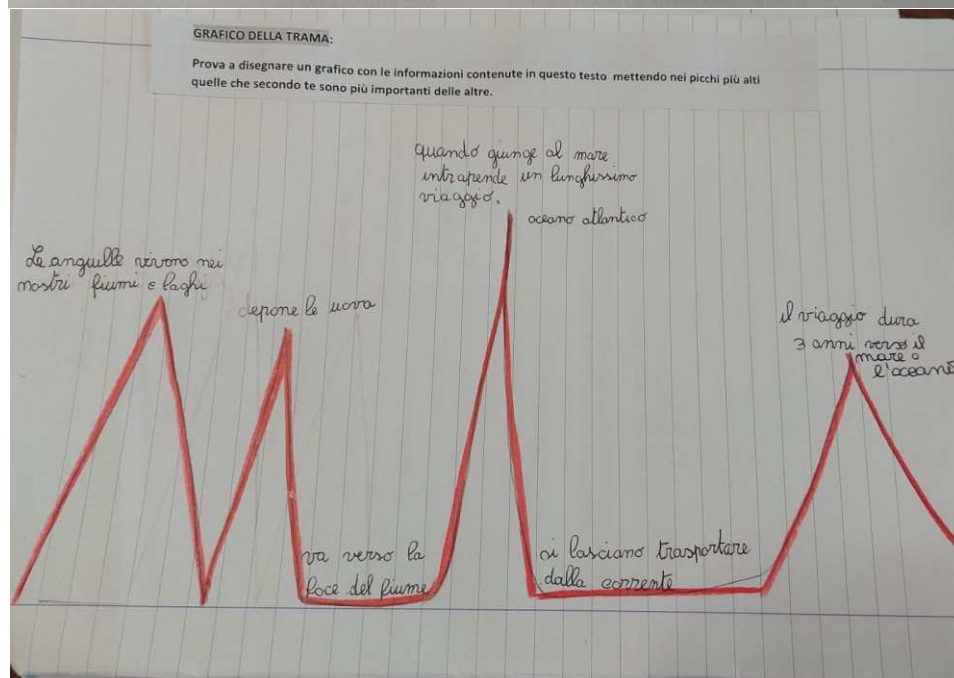 GRAFICO DELLA TRAMA:
Prova a disegnare un grafico con le informazioni contenute in questo testo mettendo nei picchi più alti
quelle che secondo te sono più importanti delle altre.
quando giunge al mare
intrapende un lunghissimo
viaggio.
oceano atlantico
Le anguille vivono nei
nostri fiumi e laghi
depone le uova
il viaggio dura
3 anni verso il
mare o
l'oceano
va verso la
foce del fiume
si lasciano trasportare
dalla corrente